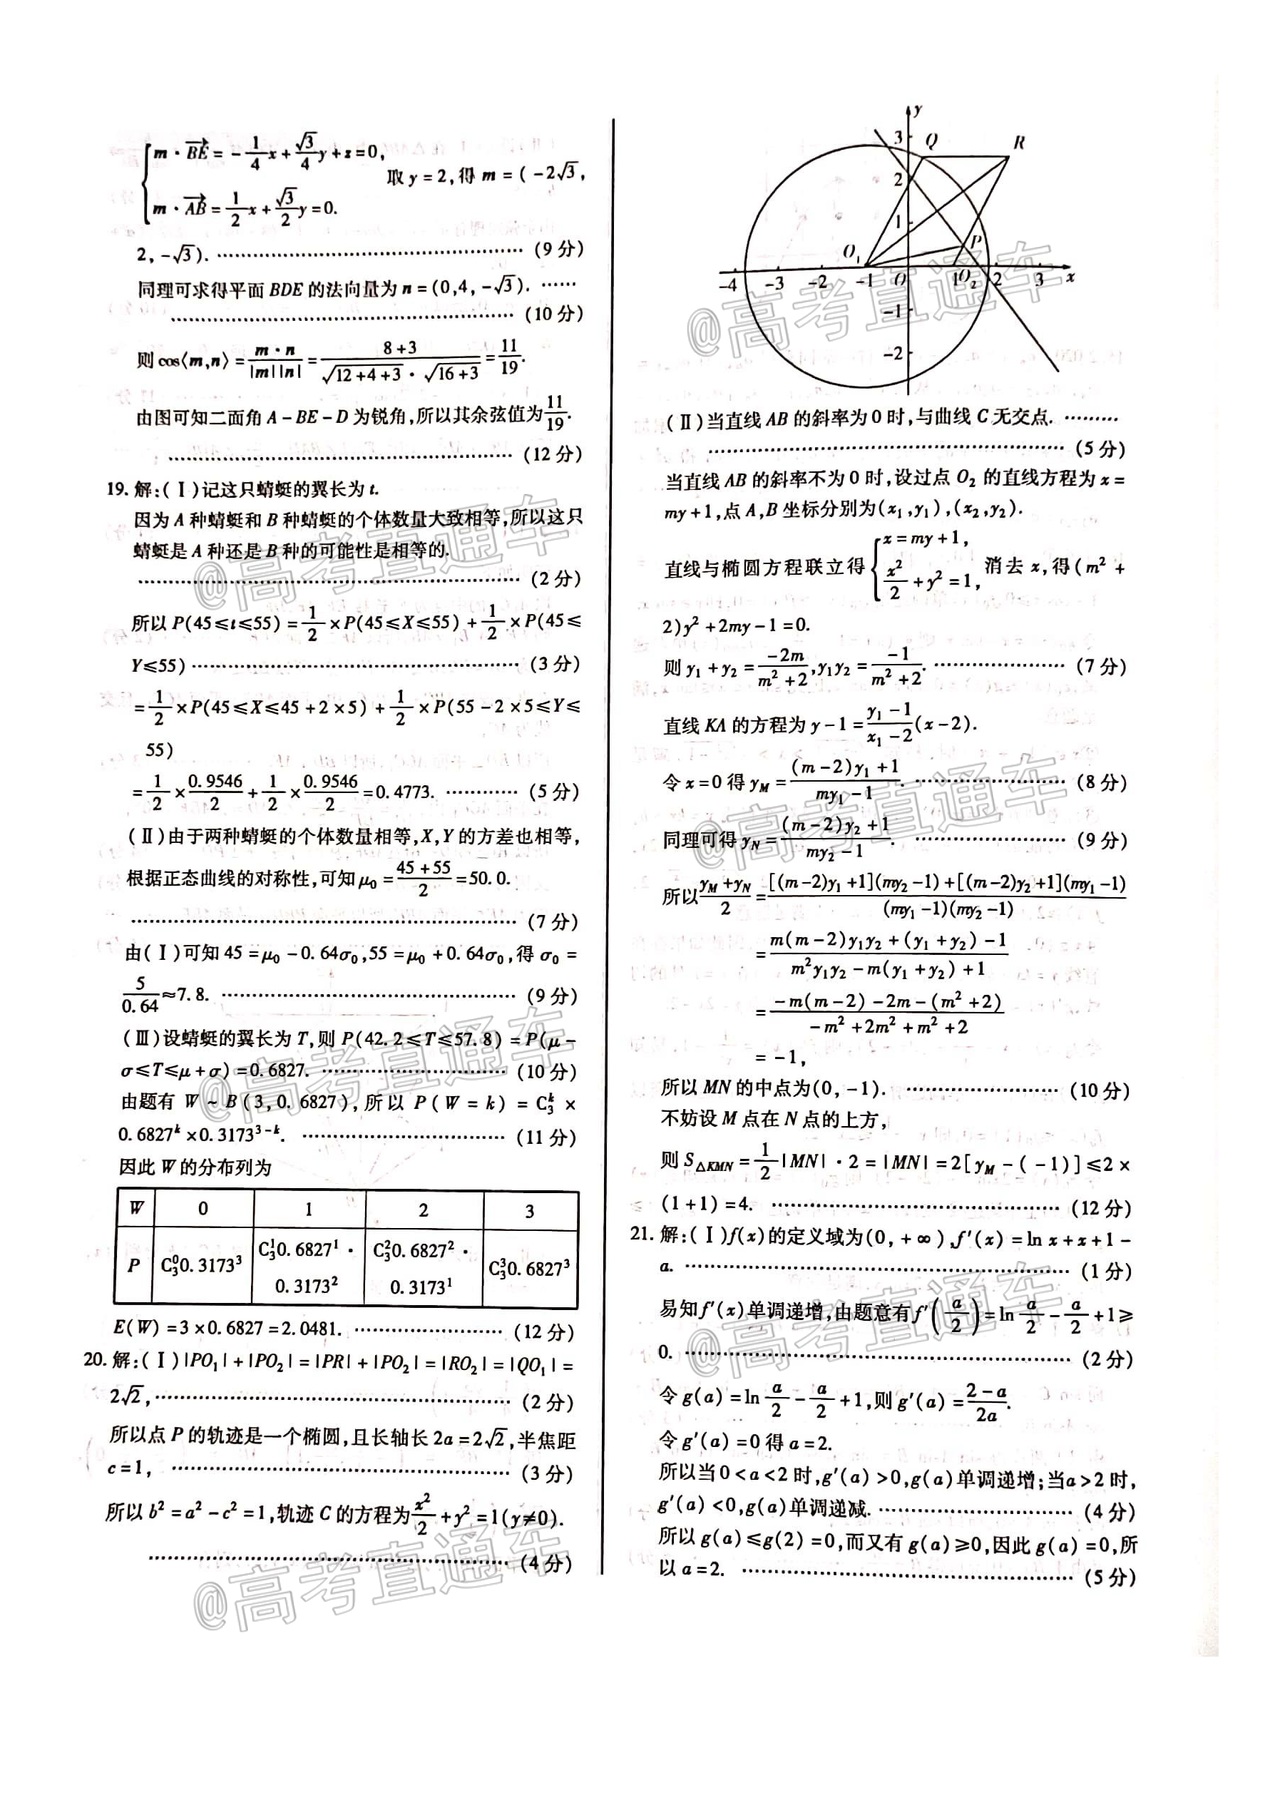 m·BE→ = -1/4 x + √3/4 y + z = 0,
m·AB→ = 1/2 x + √3/2 y = 0.
取 y=2,得 m=(-2√3,
2,-√3). …… (9分)
同理可求得平面 BDE 的法向量为 n=(0,4,-√3). ……
…… (10分)
则 cos⟨m,n⟩ = m·n/|m||n| = (8+3)/(√(12+4+3)·√(16+3)) = 11/19.
由图可知二面角 A-BE-D 为锐角,所以其余弦值为 11/19.
…… (12分)
19. 解:(Ⅰ)记这只蜻蜓的翼长为 t.
因为 A 种蜻蜓和 B 种蜻蜓的个体数量大致相等,所以这只
蜻蜓是 A 种还是 B 种的可能性是相等的.
…… (2分)
所以 P(45≤t≤55) = 1/2 × P(45≤X≤55) + 1/2 × P(45≤
Y≤55) …… (3分)
= 1/2 × P(45≤X≤45+2×5) + 1/2 × P(55-2×5≤Y≤
55)
= 1/2 × 0.9546/2 + 1/2 × 0.9546/2 = 0.4773. …… (5分)
(Ⅱ)由于两种蜻蜓的个体数量相等,X,Y 的方差也相等,
根据正态曲线的对称性,可知 μ₀ = (45+55)/2 = 50.0.
…… (7分)
由(Ⅰ)可知 45=μ₀-0.64σ₀,55=μ₀+0.64σ₀,得 σ₀=
5/0.64≈7.8. …… (9分)
(Ⅲ)设蜻蜓的翼长为 T,则 P(42.2≤T≤57.8)=P(μ-
σ≤T≤μ+σ)=0.6827. …… (10分)
由题有 W~B(3,0.6827),所以 P(W=k)=C₃ᵏ×
0.6827ᵏ×0.3173³⁻ᵏ. …… (11分)
因此 W 的分布列为
W 0 1 2 3
P C₃⁰0.3173³ C₃¹0.6827¹·0.3173² C₃²0.6827²·0.3173¹ C₃³0.6827³
E(W)=3×0.6827=2.0481. …… (12分)
20. 解:(Ⅰ)|PO₁|+|PO₂|=|PR|+|PO₂|=|RO₂|=|QO₁|=
2√2, …… (2分)
所以点 P 的轨迹是一个椭圆,且长轴长 2a=2√2,半焦距
c=1, …… (3分)
所以 b²=a²-c²=1,轨迹 C 的方程为 x²/2+y²=1(y≠0).
…… (4分)
y
3 Q R
2
1
O₁ P
-4 -3 -2 -1 O 1 O₂ 2 3 x
-1
-2
(Ⅱ)当直线 AB 的斜率为 0 时,与曲线 C 无交点. ……
…… (5分)
当直线 AB 的斜率不为 0 时,设过点 O₂ 的直线方程为 x=
my+1,点 A,B 坐标分别为(x₁,y₁),(x₂,y₂).
直线与椭圆方程联立得 { x=my+1, x²/2+y²=1, 消去 x,得(m²+
2)y²+2my-1=0.
则 y₁+y₂ = -2m/(m²+2), y₁y₂ = -1/(m²+2). …… (7分)
直线 KA 的方程为 y-1 = (y₁-1)/(x₁-2) (x-2).
令 x=0 得 y_M = ((m-2)y₁+1)/(my₁-1). …… (8分)
同理可得 y_N = ((m-2)y₂+1)/(my₂-1). …… (9分)
所以 (y_M+y_N)/2 = ([(m-2)y₁+1](my₂-1)+[(m-2)y₂+1](my₁-1))/((my₁-1)(my₂-1))
= (m(m-2)y₁y₂+(y₁+y₂)-1)/(m²y₁y₂-m(y₁+y₂)+1)
= (-m(m-2)-2m-(m²+2))/(-m²+2m²+m²+2)
= -1,
所以 MN 的中点为(0,-1). …… (10分)
不妨设 M 点在 N 点的上方,
则 S△KMN = 1/2|MN|·2=|MN|=2[y_M-(-1)]≤2×
(1+1)=4. …… (12分)
21. 解:(Ⅰ)f(x)的定义域为(0,+∞),f′(x)=ln x+x+1-
a. …… (1分)
易知 f′(x)单调递增,由题意有 f′(a/2)=ln a/2 - a/2 +1≥
0. …… (2分)
令 g(a)=ln a/2 - a/2 +1,则 g′(a)=(2-a)/2a.
令 g′(a)=0 得 a=2.
所以当 0<a<2 时,g′(a)>0,g(a)单调递增;当 a>2 时,
g′(a)<0,g(a)单调递减. …… (4分)
所以 g(a)≤g(2)=0,而又有 g(a)≥0,因此 g(a)=0,所
以 a=2. …… (5分)
@高考直通车
@高考直通车
@高考直通车
@高考直通车
@高考直通车
@高考直通车
@高考直通车